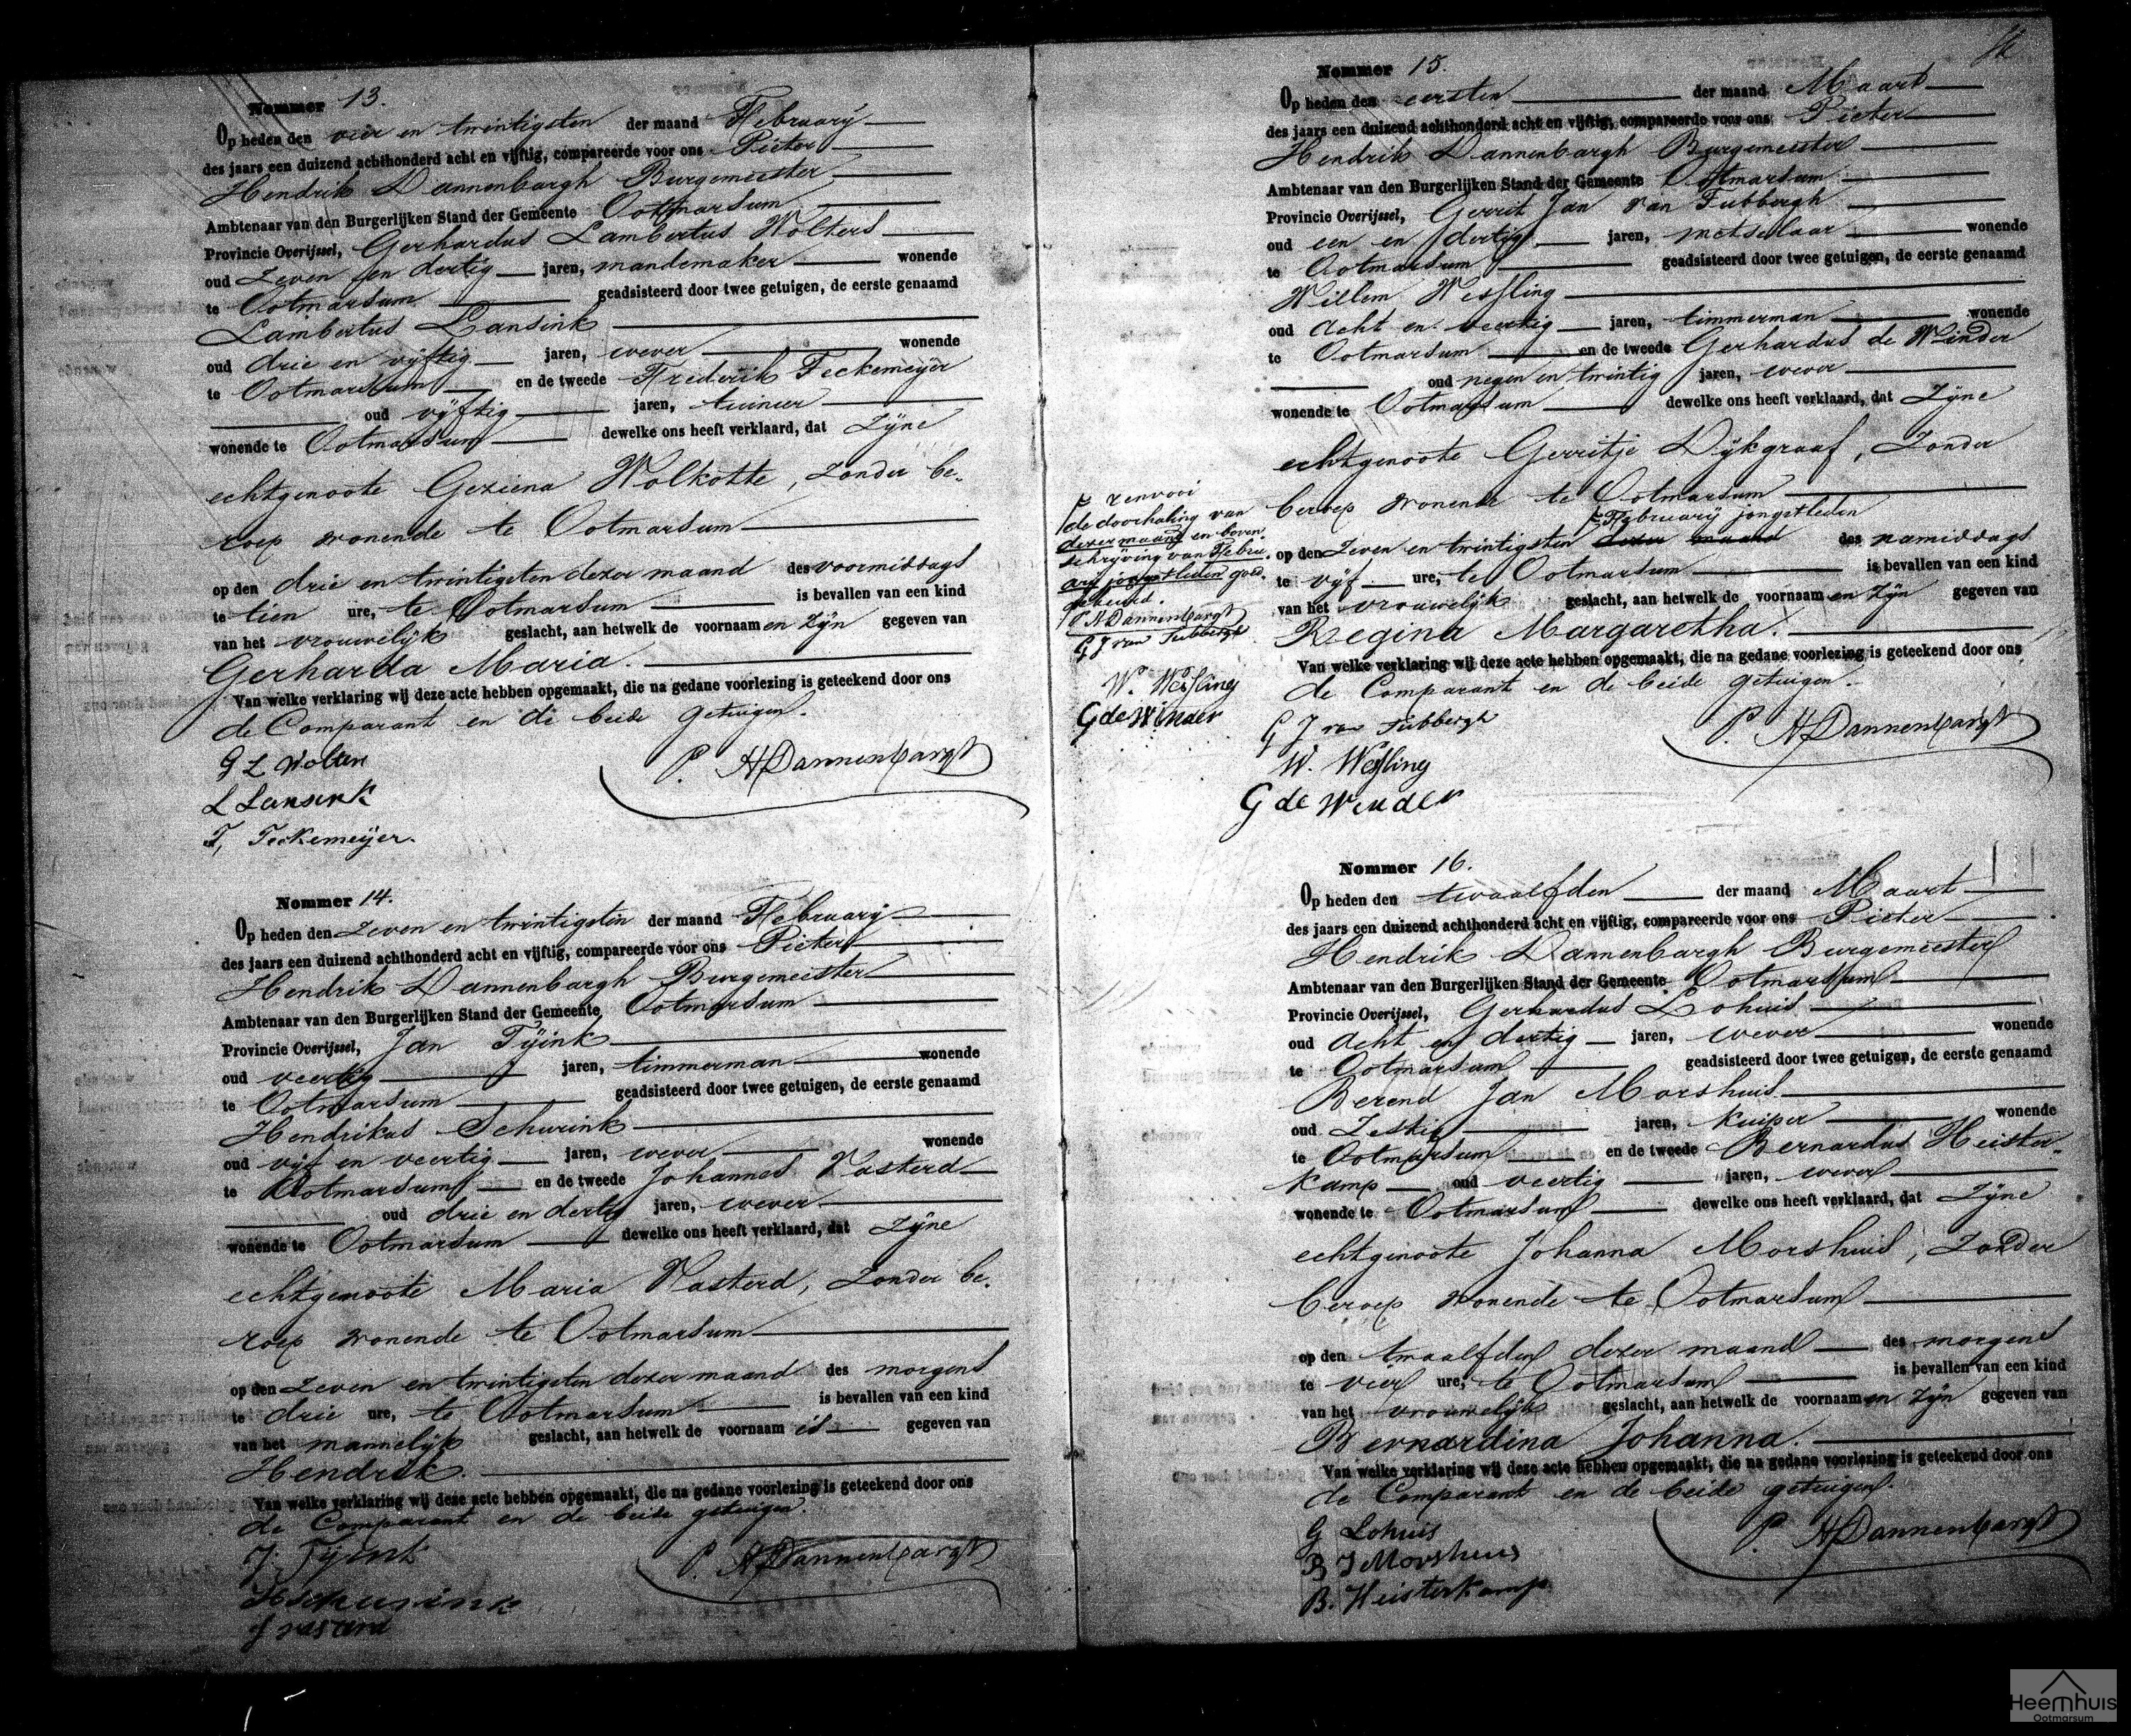 Nommer 13.
Op heden den vier en twintigsten der maand February
des jaars een duizend achthonderd acht en vijftig, compareerde voor ons Pieter
Hendrik Dannenbargh Burgemeester
Ambtenaar van den Burgerlijken Stand der Gemeente Ootmarsum
Provincie Overijssel, Gerhardus Lambertus Wolters
oud zeven en dertig jaren, mandemaker wonende
te Ootmarsum geadsisteerd door twee getuigen, de eerste genaamd
Lambertus Lansink
oud drie en vyftig jaren, wever wonende
te Ootmarsum en de tweede Frederik Teckemeyer
oud vyftig jaren, tuinier
wonende te Ootmarsum dewelke ons heeft verklaard, dat Zyne
echtgenoote Geziena Wolkotte, zonder be-
roep wonende te Ootmarsum
op den drie en twintigsten dezer maand des voormiddags
te tien ure, te Ootmarsum is bevallen van een kind
van het vrouwelyk geslacht, aan hetwelk de voornaam en zyn gegeven van
Gerharda Maria.
Van welke verklaring wij deze acte hebben opgemaakt, die na gedane voorlezing is geteekend door ons
de Comparant en de beide getuigen.
G L Wolters
P. H Dannenbargh
L Lansink
F, Teckemeijer.
Nommer 14.
Op heden den Zeven en twintigsten der maand February
des jaars een duizend achthonderd acht en vijftig, compareerde voor ons Pieter
Hendrik Dannenbargh Burgemeester
Ambtenaar van den Burgerlijken Stand der Gemeente Ootmarsum
Provincie Overijssel, Jan Tyink
oud veertig jaren, timmerman wonende
te Ootmarsum geadsisteerd door twee getuigen, de eerste genaamd
Hendrikus Schurink
oud vyf en veertig jaren, wever wonende
te Ootmarsum en de tweede Johannes Vasterd
oud drie en dertig jaren, wever
wonende te Ootmarsum dewelke ons heeft verklaard, dat Zyne
echtgenoote Maria Vasterd, zonder be-
roep wonende te Ootmarsum
op den Zeven en twintigsten dezer maand des morgens
te drie ure, te Ootmarsum is bevallen van een kind
van het mannelyk geslacht, aan hetwelk de voornaam is gegeven van
Hendrik.
Van welke verklaring wij deze acte hebben opgemaakt, die na gedane voorlezing is geteekend door ons
de Comparant en de beide getuigen.
J. Tyink
P. H Dannenbargh
H Schurink
J Vasterd
Nommer 15.
Op heden den eersten der maand Maart
des jaars een duizend achthonderd acht en vijftig, compareerde voor ons Pieter
Hendrik Dannenbargh Burgemeester
Ambtenaar van den Burgerlijken Stand der Gemeente Ootmarsum
Provincie Overijssel, Gerrit Jan van Tubbergh
oud een en dertig jaren, metselaar wonende
te Ootmarsum geadsisteerd door twee getuigen, de eerste genaamd
Willem Wesfling
oud Acht en veertig jaren, timmerman wonende
te Ootmarsum en de tweede Gerhardus de Winder
oud negen en twintig jaren, wever
wonende te Ootmarsum dewelke ons heeft verklaard, dat Zyne
echtgenoote Gerritje Dykgraaf, zonder
beroep wonende te Ootmarsum
February jongstleden
op den Zeven en twintigsten dezer maand des namiddags
te vyf ure, te Ootmarsum is bevallen van een kind
van het vrouwelyk geslacht, aan hetwelk de voornaam en zyn gegeven van
Regina Margaretha.
Van welke verklaring wij deze acte hebben opgemaakt, die na gedane voorlezing is geteekend door ons
de Comparant en de beide getuigen.
G J van Tubbergh
P. H Dannenbargh
W. Wesfling
G de Winder
renvooi
de doorhaling van
dezer maand en boven-
schryving van Febru-
ary jongstleden goed-
gekeurd.
P H Dannenbargh
G J van Tubbergh
W. Wesfling
G de Winder
Nommer 16.
Op heden den twaalfden der maand Maart
des jaars een duizend achthonderd acht en vijftig, compareerde voor ons Pieter
Hendrik Dannenbargh Burgemeester
Ambtenaar van den Burgerlijken Stand der Gemeente Ootmarsum
Provincie Overijssel, Gerhardus Lohuis
oud Acht en dertig jaren, wever wonende
te Ootmarsum geadsisteerd door twee getuigen, de eerste genaamd
Berend Jan Morshuis
oud Zestig jaren, kuiper wonende
te Ootmarsum en de tweede Bernardus Heister-
kamp oud veertig jaren, wever
wonende te Ootmarsum dewelke ons heeft verklaard, dat Zyne
echtgenoote Johanna Morshuis, zonder
beroep wonende te Ootmarsum
op den twaalfden dezer maand des morgens
te vier ure, te Ootmarsum is bevallen van een kind
van het vrouwelyk geslacht, aan hetwelk de voornaam en zyn gegeven van
Bernardina Johanna.
Van welke verklaring wij deze acte hebben opgemaakt, die na gedane voorlezing is geteekend door ons
de Comparant en de beide getuigen.
G Lohuis
P. H Dannenbargh
B J Morshuis
B. Heisterkamp
Heemhuis
Ootmarsum